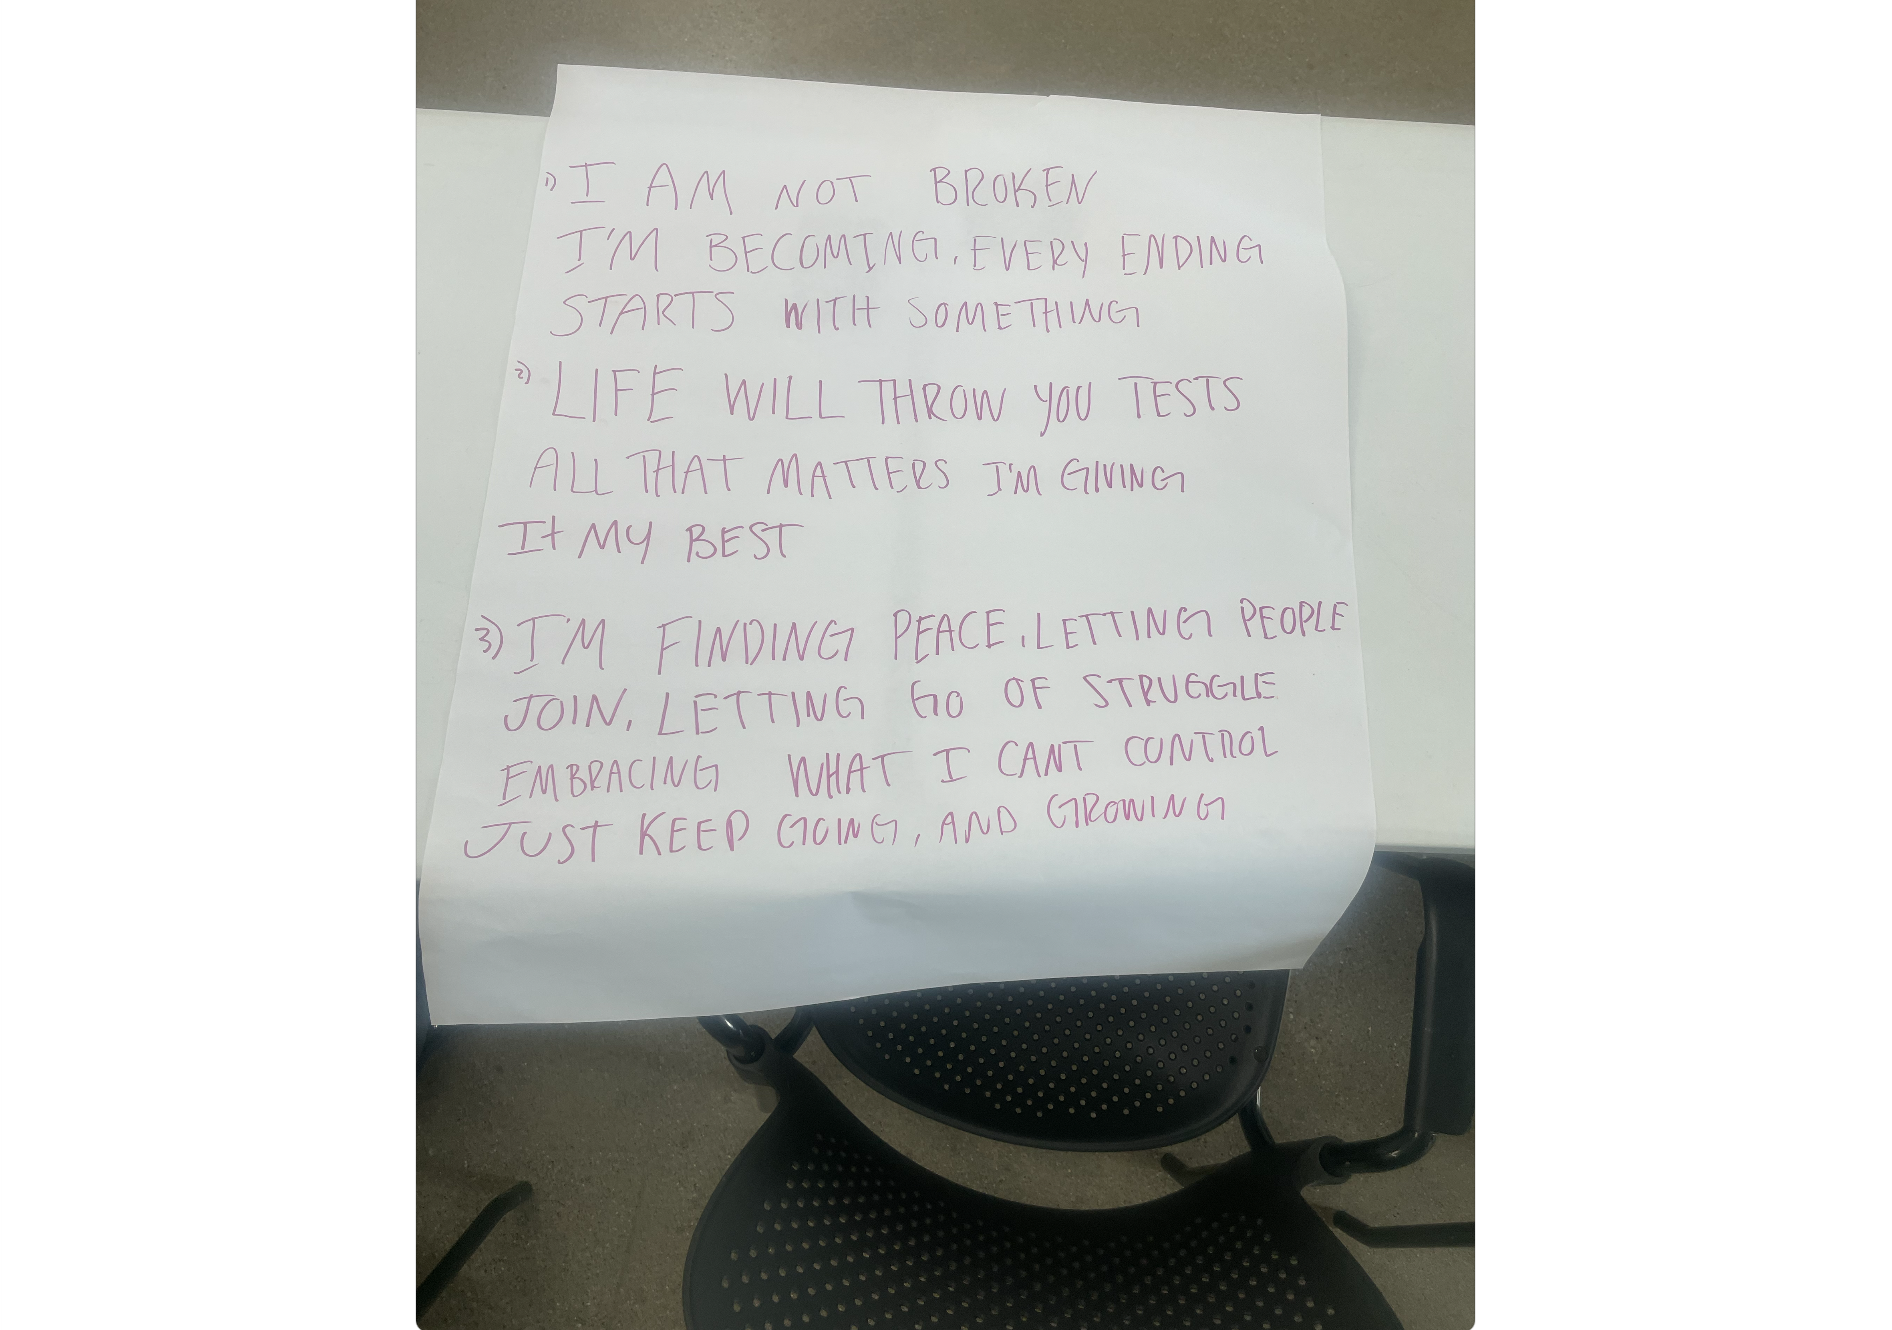 1) I AM NOT BROKEN
I'M BECOMING. EVERY ENDING
STARTS WITH SOMETHING
2) LIFE WILL THROW YOU TESTS
ALL THAT MATTERS I'M GIVING
It MY BEST
3) I'M FINDING PEACE, LETTING PEOPLE
JOIN, LETTING GO OF STRUGGLE
EMBRACING WHAT I CANT CONTROL
JUST KEEP GOING, AND GROWING